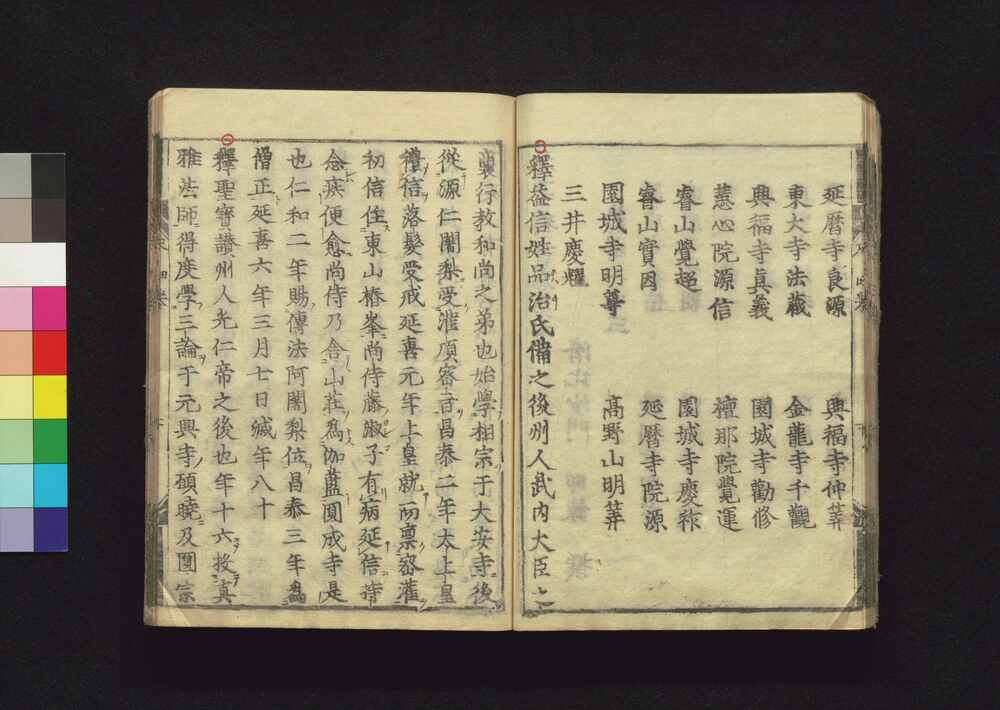 延曆寺良源　興福寺仲筭
東大寺法藏　金龍寺千觀
興福寺真義　園城寺勸修
慧心院源信　檀那院覺運
睿山覺超　園城寺慶祚
睿山實因　延曆寺院源
園城寺明尊　高野山明筭
三井慶耀
釋益信姓品治氏備之後州人武內大臣之
裔行教和尚之弟也始學相宗于大安寺後
從源仁闍梨受灌頂密旨昌泰二年太上皇
禮信落髮受戒延喜元年上皇就而禀密灌
初信住東山椿峯尚侍藤淑子有病延信持
念疾便愈尚侍乃舍山莊爲伽藍圓成寺是
也仁和二年賜傳法阿闍梨位昌泰三年爲
僧正延喜六年三月七日滅年八十
釋聖寶讚州人光仁帝之後也年十六投真
雅法師得度學三論于元興寺碩曉及圓宗